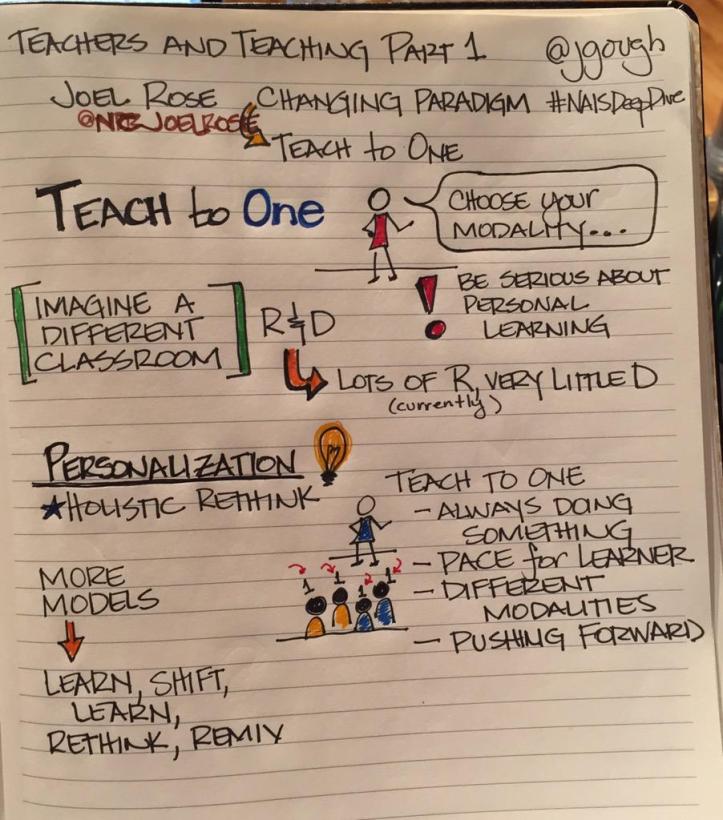 TEACHERS AND TEACHING PART 1 @jgough
JOEL ROSE CHANGING PARADIGM #NAISDeepDive
TEACH to ONE
TEACH to One
CHOOSE your
MODALITY...
BE SERIOUS ABOUT
PERSONAL
LEARNING
IMAGINE A
DIFFERENT
CLASSROOM
R&D
LOTS OF R, VERY LITTLE D
(currently)
PERSONALIZATION
★HOLISTIC RETHINK
TEACH TO ONE
- ALWAYS DOING
SOMETHING
- PACE for LEARNER
- DIFFERENT
MODALITIES
- PUSHING FORWARD
1 1 1 1
MORE
MODELS
LEARN, SHIFT,
LEARN,
RETHINK, REMIX